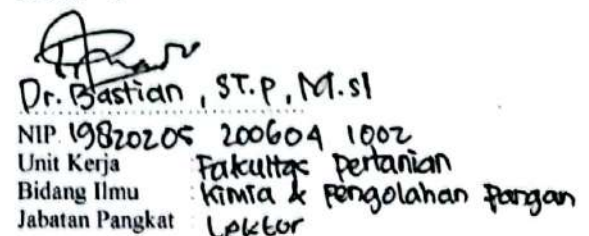 Dr. Bastian, ST.P, M.sI
NIP. 19820205 200604 1002
Unit Kerja : Fakultas pertanian
Bidang Ilmu : kimia & pengolahan pangan
Jabatan Pangkat : Lektor